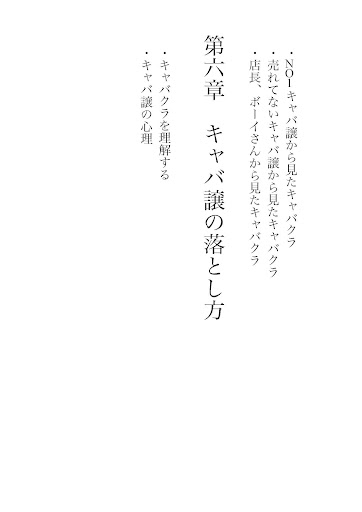 ・NO1キャバ譲から見たキャバクラ
・売れてないキャバ譲から見たキャバクラ
・店長、ボーイさんから見たキャバクラ
第六章　キャバ譲の落とし方
・キャバクラを理解する
・キャバ譲の心理